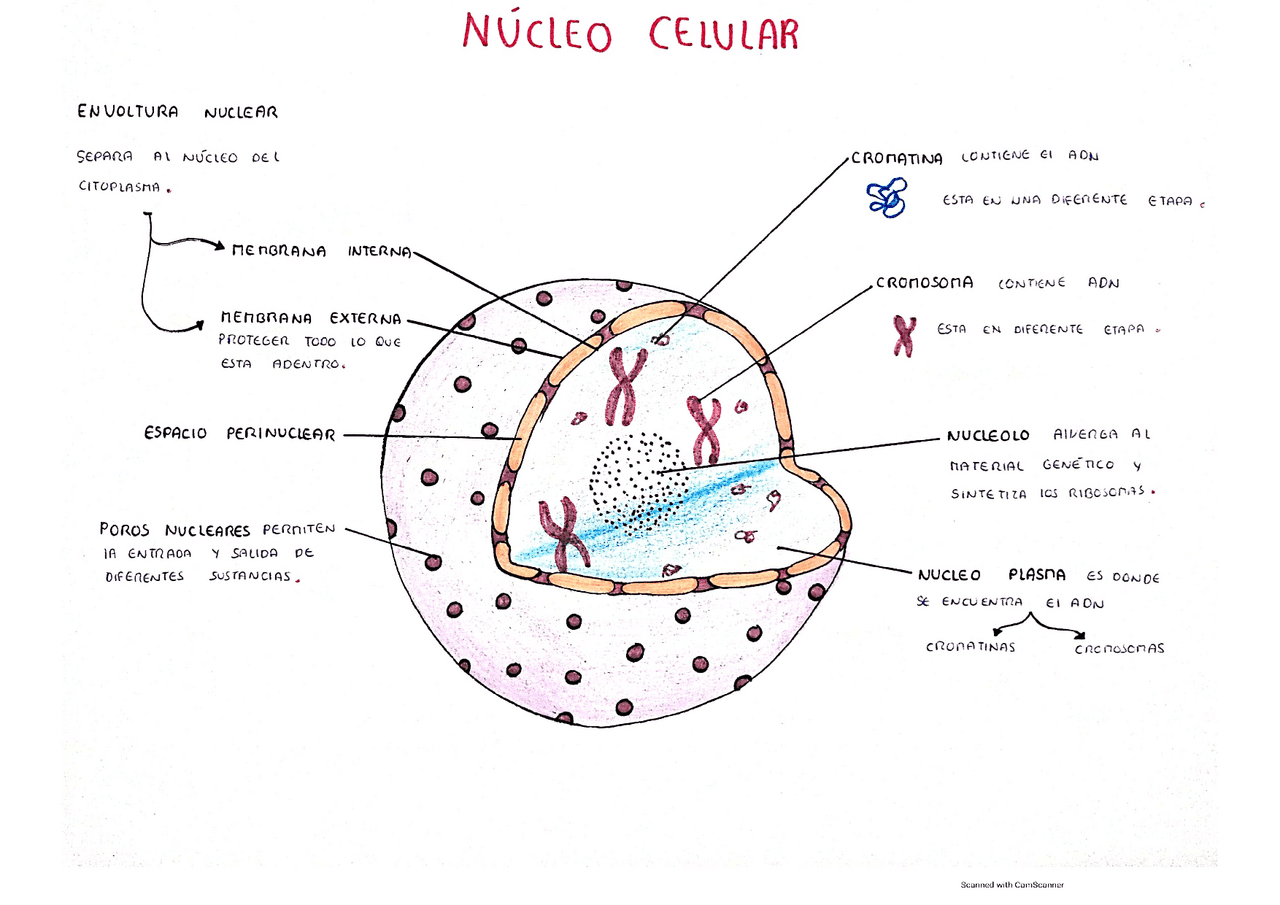 NÚCLEO CELULAR
ENVOLTURA NUCLEAR
SEPARA Al NÚCLEO DEl
CITOPLASMA.
MEMBRANA INTERNA
MEMBRANA EXTERNA
PROTEGER TODO lO QUE
ESTA ADENTRO.
ESPACIO PERINUCLEAR
POROS NUCLEARES PERMITEN
lA ENTRADA Y SALIDA DE
DIFERENTES SUSTANCIAS.
CROMATINA CONTIENE El ADN
ESTA EN UNA DIFERENTE ETAPA.
CROMOSOMA CONTIENE ADN
ESTA EN DIFERENTE ETAPA.
NUCLEOLO AlVERGA AL
MATERIAL GENÉTICO Y
SINTETIZA lOS RIBOSOMAS.
NUCLEO PLASMA ES DONDE
SE ENCUENTRA El ADN
CROMATINAS CROMOSOMAS
Scanned with CamScanner